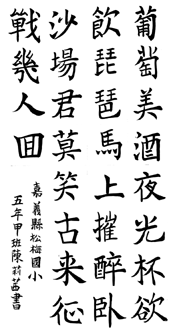 葡萄美酒夜光杯欲
飲琵琶馬上摧醉臥
沙場君莫笑古来征
戰幾人囬
嘉義縣松梅國小
五年甲班陳莉書